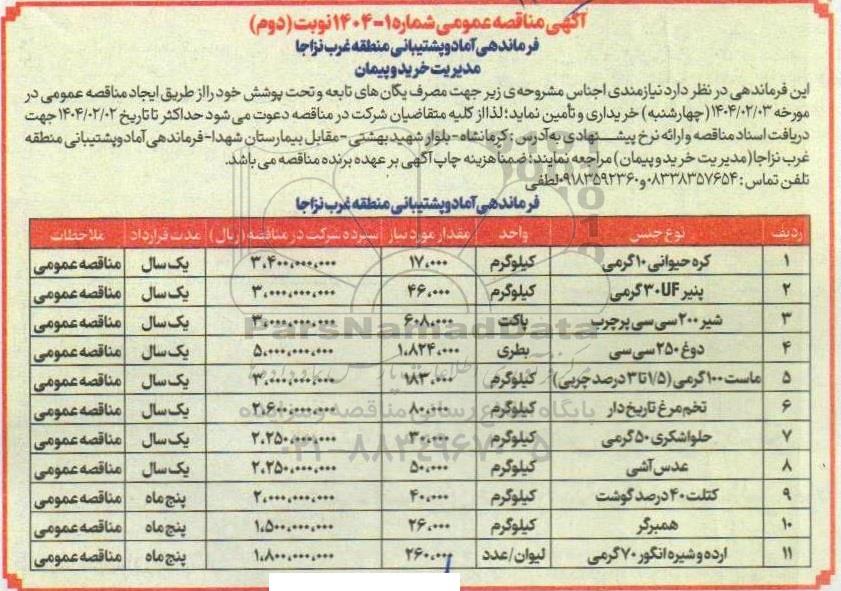 آگهی مناقصه عمومی شماره ۱-۱۴۰۴ نوبت (دوم)
فرماندهی آماد و پشتیبانی منطقه غرب نزاجا
مدیریت خرید و پیمان
این فرماندهی در نظر دارد نیازمندی اجناس مشروحه ی زیر جهت مصرف یگان های تابعه و تحت پوشش خود را از طریق ایجاد مناقصه عمومی در
مورخه ۱۴۰۴/۰۲/۰۳ (چهارشنبه) خریداری و تأمین نماید؛ لذا از کلیه متقاضیان شرکت در مناقصه دعوت می شود حداکثر تا تاریخ ۱۴۰۴/۰۲/۰۲ جهت
دریافت اسناد مناقصه و ارائه نرخ پیشنهادی به آدرس: کرمانشاه - بلوار شهید بهشتی - مقابل بیمارستان شهدا - فرماندهی آماد و پشتیبانی منطقه
غرب نزاجا (مدیریت خرید و پیمان) مراجعه نمایند؛ ضمناً هزینه چاپ آگهی بر عهده برنده مناقصه می باشد.
تلفن تماس: ۰۸۳۳۸۳۵۷۶۵۴ و ۰۹۱۸۳۵۹۲۳۶۰ لطفی
فرماندهی آماد و پشتیبانی منطقه غرب نزاجا
ردیف نوع جنس واحد مقدار مورد نیاز سپرده شرکت در مناقصه (ریال) مدت قرارداد ملاحظات
۱ کره حیوانی ۱۰ گرمی کیلوگرم ۱۷,۰۰۰ ۳,۴۰۰,۰۰۰,۰۰۰ یک سال مناقصه عمومی
۲ پنیر UF ۳۰ گرمی کیلوگرم ۴۶,۰۰۰ ۳,۰۰۰,۰۰۰,۰۰۰ یک سال مناقصه عمومی
۳ شیر ۲۰۰ سی سی پرچرب پاکت ۶۰۸,۰۰۰ ۳,۰۰۰,۰۰۰,۰۰۰ یک سال مناقصه عمومی
۴ دوغ ۲۵۰ سی سی بطری ۱,۸۲۴,۰۰۰ ۵,۰۰۰,۰۰۰,۰۰۰ یک سال مناقصه عمومی
۵ ماست ۱۰۰ گرمی (۱/۵ تا ۳ درصد چربی) کیلوگرم ۱۸۳,۰۰۰ ۳,۰۰۰,۰۰۰,۰۰۰ یک سال مناقصه عمومی
۶ تخم مرغ تاریخ دار کیلوگرم ۸۰,۰۰۰ ۲,۶۰۰,۰۰۰,۰۰۰ یک سال مناقصه عمومی
۷ حلواشکری ۵۰ گرمی کیلوگرم ۳۰,۰۰۰ ۲,۲۵۰,۰۰۰,۰۰۰ یک سال مناقصه عمومی
۸ عدس آشی کیلوگرم ۵۰,۰۰۰ ۲,۲۵۰,۰۰۰,۰۰۰ یک سال مناقصه عمومی
۹ کتلت ۴۰ درصد گوشت کیلوگرم ۴۰,۰۰۰ ۲,۰۰۰,۰۰۰,۰۰۰ پنج ماه مناقصه عمومی
۱۰ همبرگر کیلوگرم ۲۶,۰۰۰ ۱,۵۰۰,۰۰۰,۰۰۰ پنج ماه مناقصه عمومی
۱۱ ارده و شیره انگور ۷۰ گرمی لیوان/عدد ۲۶۰,۰۰۰ ۱,۸۰۰,۰۰۰,۰۰۰ پنج ماه مناقصه عمومی
ParsNamadData
پایگاه اطلاع رسانی مناقصه و مزایده
۰۲۱-۸۸۳۴۹۶۷۰-۵